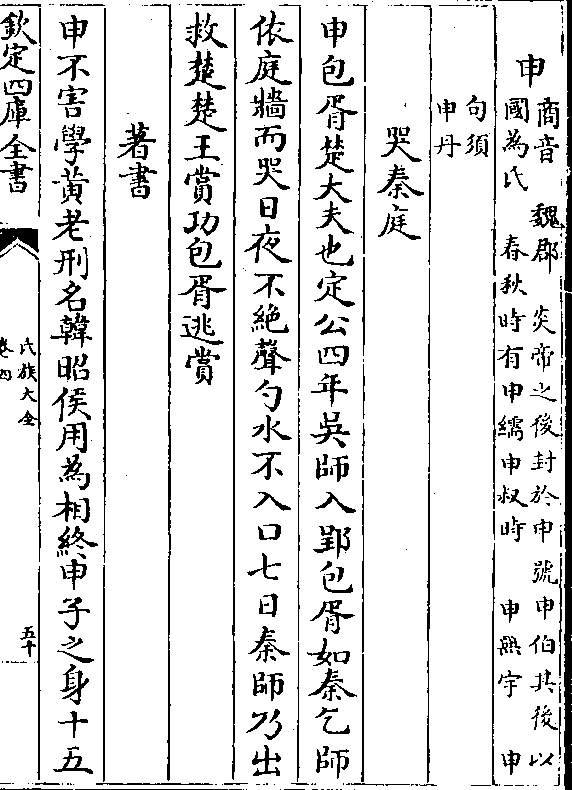 申 商音 魏郡 炎帝之後封於申號申伯其後以
國為氏 春秋時有申繻申叔時 申無宇 申
句須
申丹
哭秦庭
申包胥楚大夫也定公四年吳師入郢包胥如秦乞師
依庭牆而哭日夜不絶聲勺水不入口七日秦師乃出
救楚楚王賞功包胥逃賞
著書
申不害學黃老刑名韓昭侯用為相終申子之身十五
欽定四庫全書
氏族大全
卷四
五十